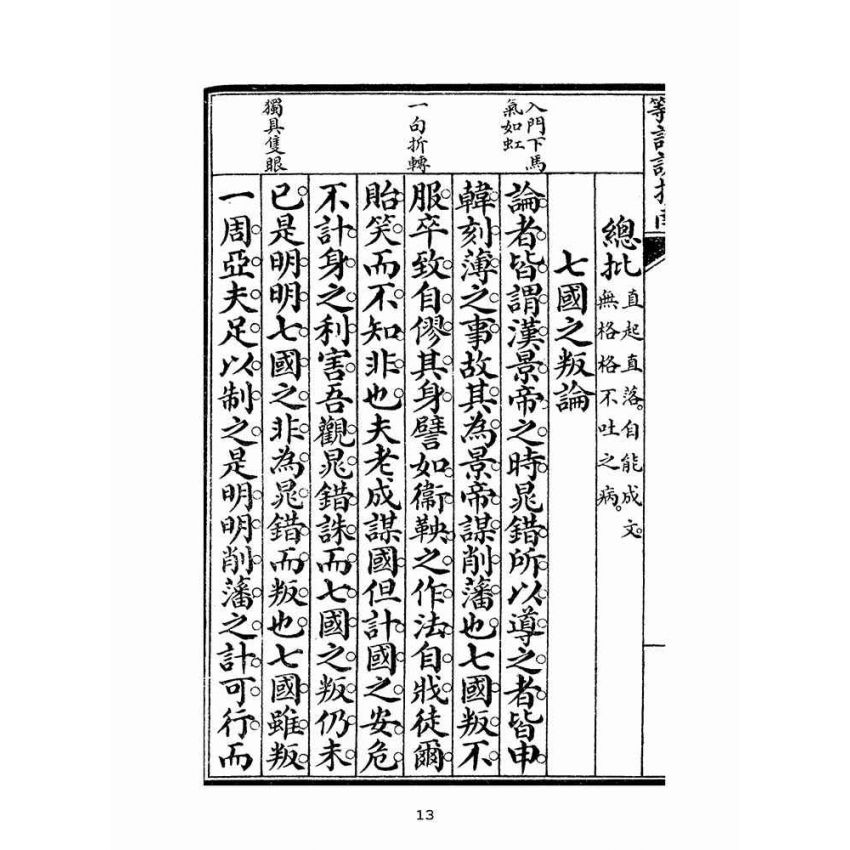 總批 直起直落。自能成文。
無格格不吐之病。
七國之叛論
入門下馬
氣如虹
論者皆謂漢景帝之時晁錯所以導之者皆申
韓刻薄之事故其為景帝謀削藩也七國叛不
一句折轉
服卒致自僇其身譬如衞鞅之作法自戕徒爾
貽笑而不知非也夫老成謀國但計國之安危
不計身之利害吾觀晁錯誅而七國之叛仍未
獨具隻眼
已是明明七國之非為晁錯而叛也七國雖叛
一周亞夫足以制之是明明削藩之計可行而
13